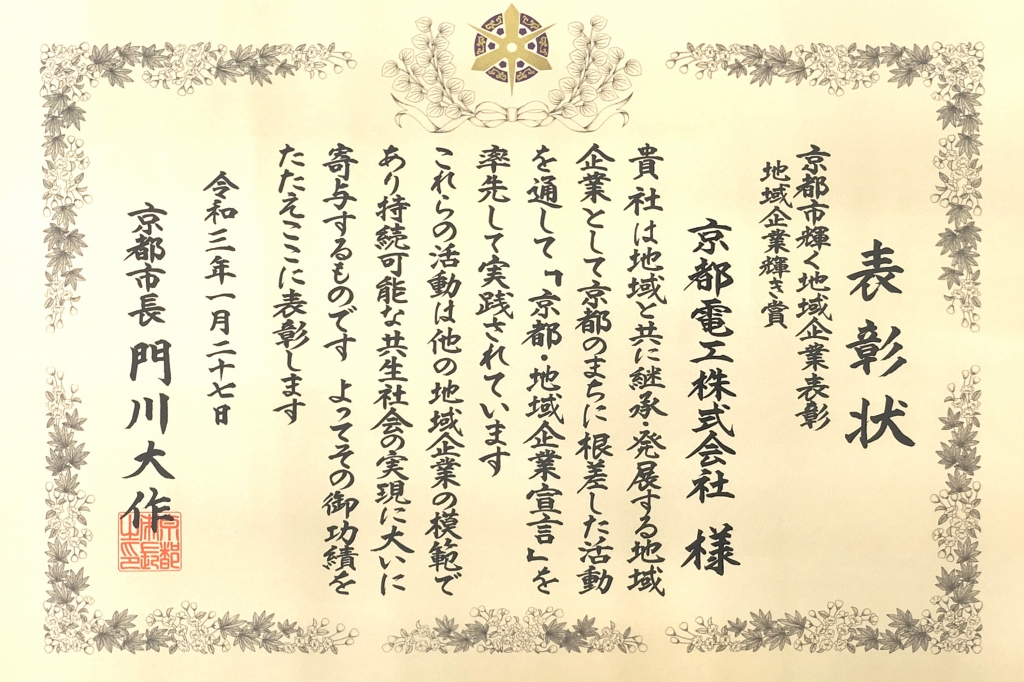 表彰状
京都市輝く地域企業表彰
地域企業輝き賞
京都電工株式会社 様
貴社は地域と共に継承・発展する地域
企業として京都のまちに根差した活動
を通して「京都・地域企業宣言」を
率先して実践されています
これらの活動は他の地域企業の模範で
あり持続可能な共生社会の実現に大いに
寄与するものです よってその御功績を
たたえここに表彰します
令和三年一月二十七日
京都市長 門川大作
京都
市長
之印